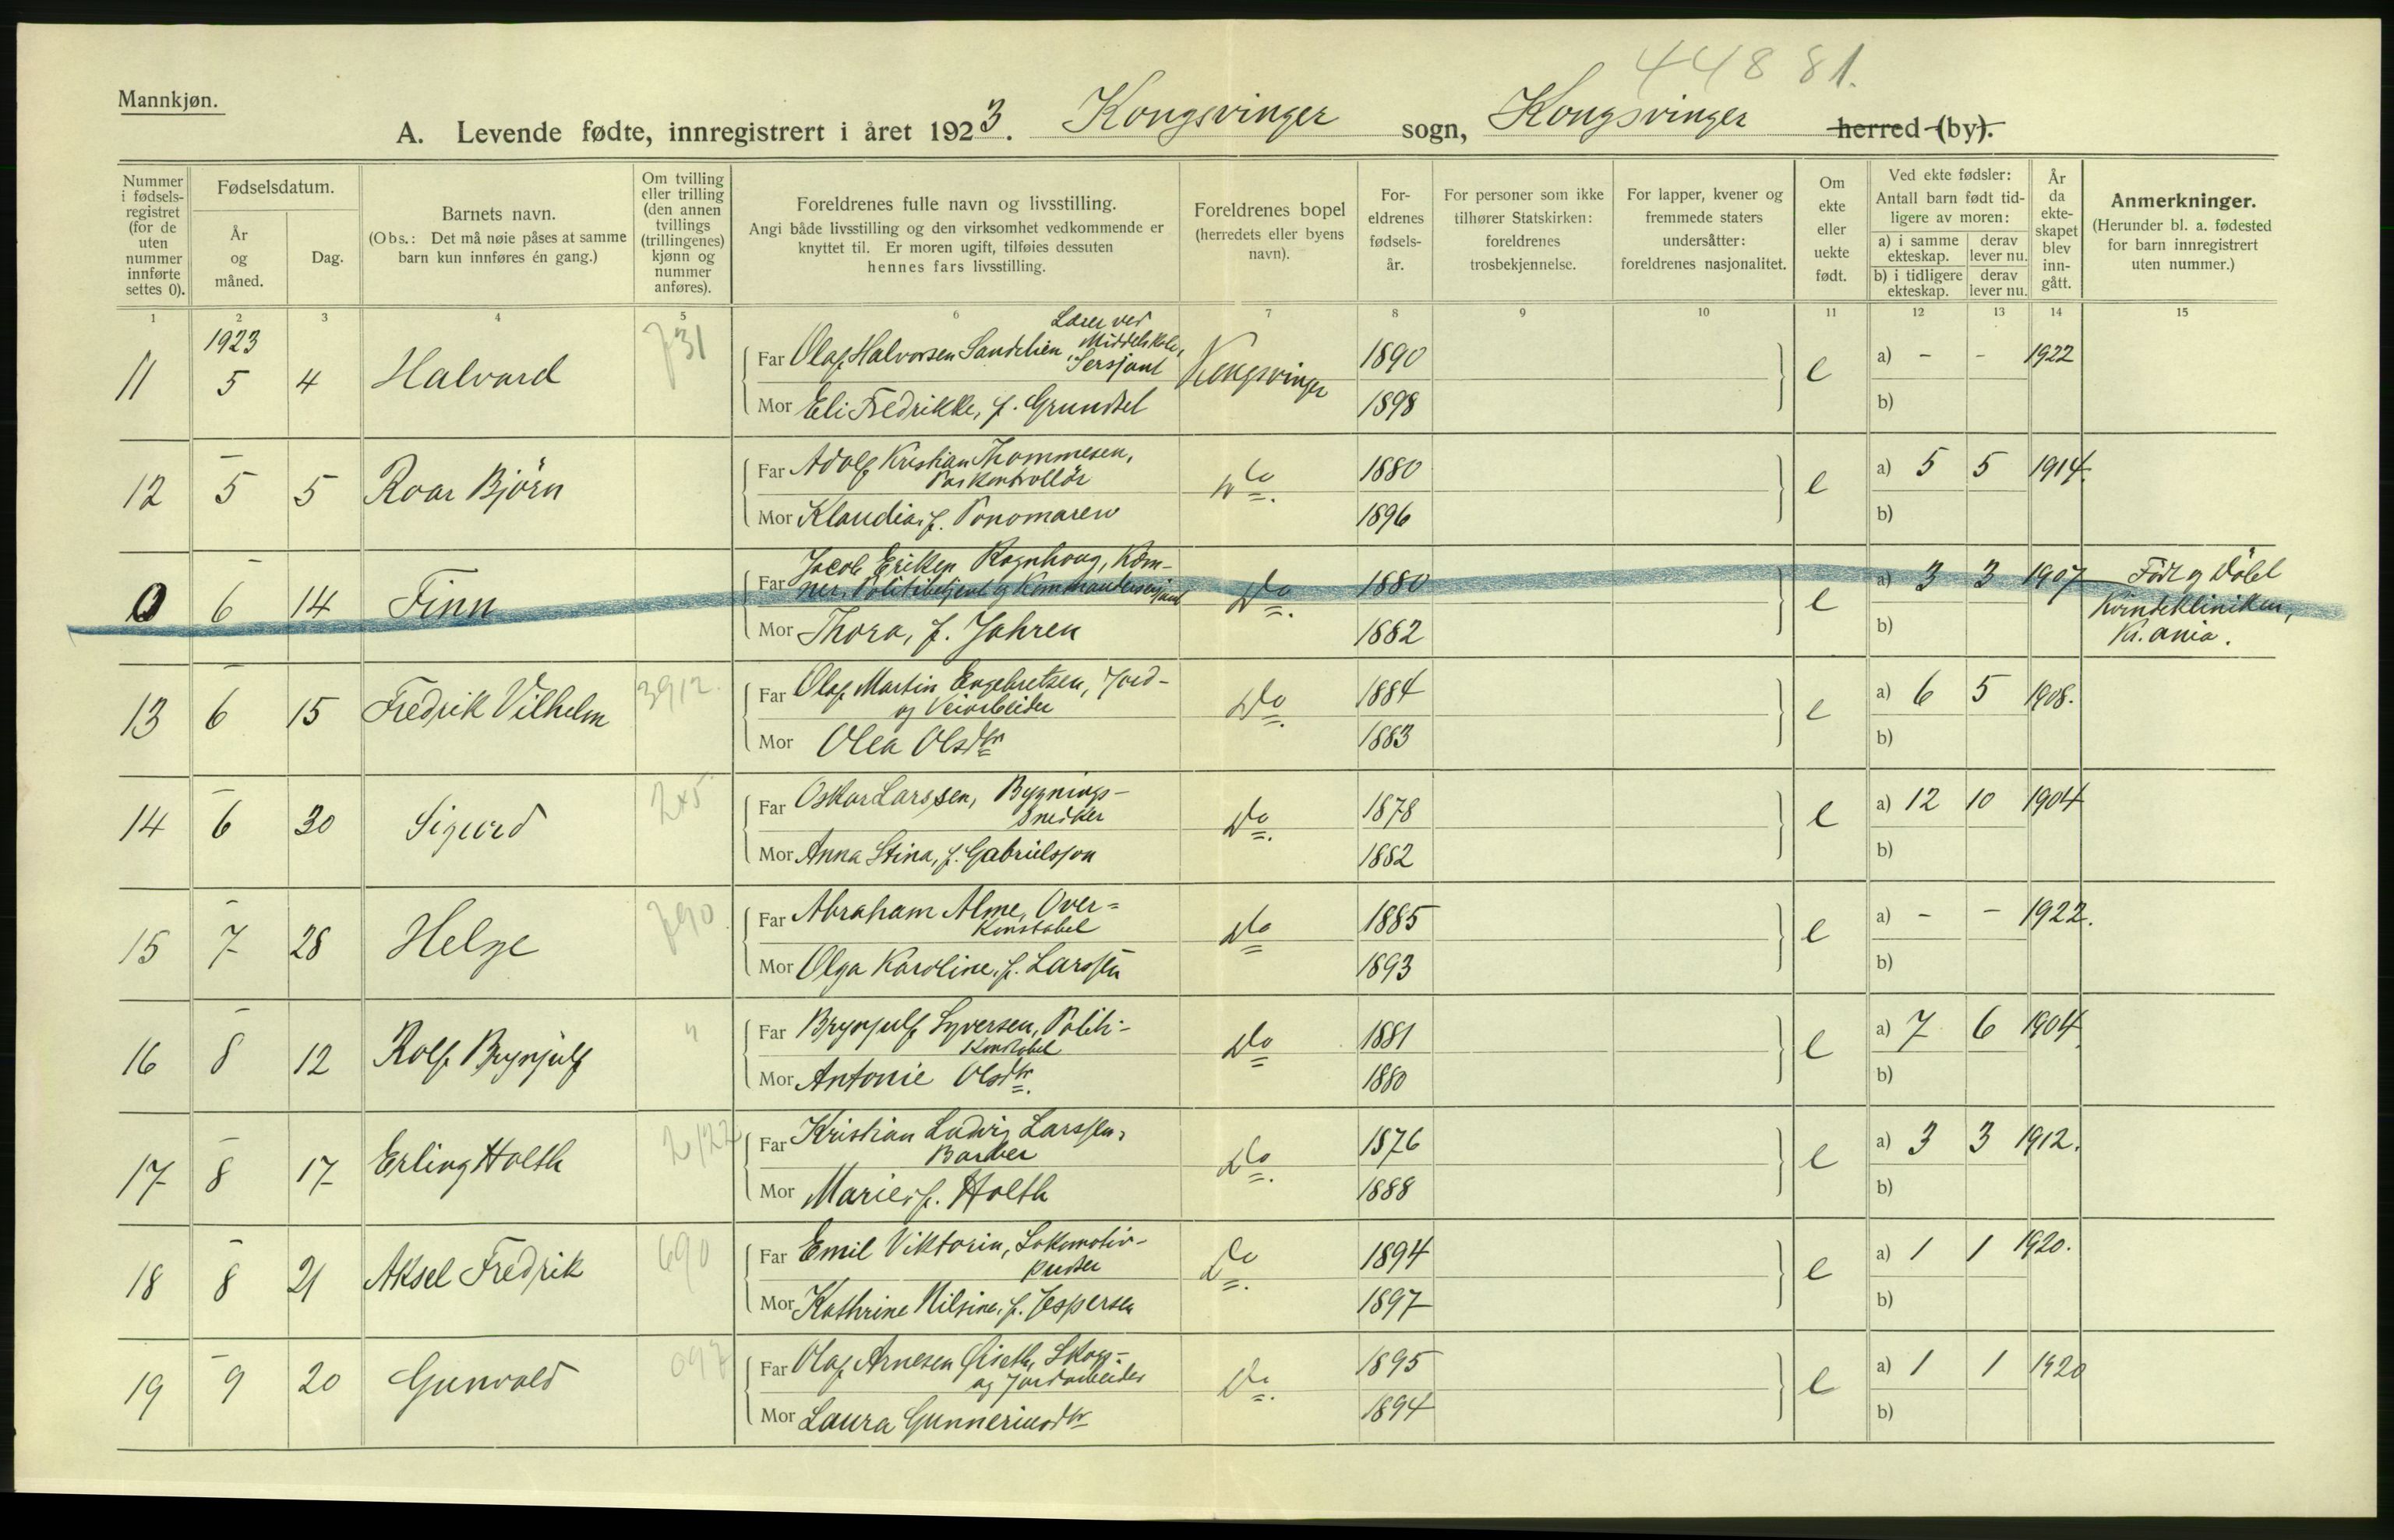 44881.
Mannkjøn.
A. Levende fødte, innregistrert i året 1923. Kongsvinger sogn, Kongsvinger herred (by).
Nummer i fødselsregistret (for de uten nummer innførte settes 0).
Fødselsdatum.
År og måned.
Dag.
Barnets navn.
(Obs.: Det må nøie påses at samme barn kun innføres én gang.)
Om tvilling eller trilling (den annen tvillings (trillingenes) kjønn og nummer anføres).
Foreldrenes fulle navn og livsstilling.
Angi både livsstilling og den virksomhet vedkommende er knyttet til. Er moren ugift, tilføies dessuten hennes fars livsstilling.
Foreldrenes bopel (herredets eller byens navn).
For-eldrenes fødsels-år.
For personer som ikke tilhører Statskirken: foreldrenes trosbekjennelse.
For lapper, kvener og fremmede staters undersåtter: foreldrenes nasjonalitet.
Om ekte eller uekte født.
Ved ekte fødsler:
Antall barn født tidligere av moren:
a) i samme ekteskap. derav lever nu.
b) i tidligere ekteskap. derav lever nu.
År da ekteskapet blev inngått.
Anmerkninger.
(Herunder bl. a. fødested for barn innregistrert uten nummer.)
1 2 3 4 5 6 7 8 9 10 11 12 13 14 15
1923
11 5 4 Halvard 731
Lærer ved Middelskole,
Far Olaf Halvorsen Sandelien, Sersjant Kongsvinger 1890 e a) - - 1922
Mor Eli Fredrikke, f. Grundsel 1898 b)
12 – 5 5 Roar Björn
Far Adolf Kristian Thommesen,
Paskontrollör do. 1880 e a) 5 5 1914.
Mor Klaudia, f. Ponomarew 1896 b)
0 – 6 14 Finn
Far Jacob Eriksen Rognhaug, Kæm-
ner, Politibetjent og Kommandersersjant Do. 1880 e a) 3 3 1907 Födt og Döbt
Kvindekliniken,
Kr.ania.
Mor Thora, f. Jahren 1882 b)
13 – 6 15 Fredrik Vilhelm 3912.
Far Olaf Martin Engebretsen, Jord-
og Veiarbeider Do. 1884 e a) 6 5 1908.
Mor Olea Olsdtr 1883 b)
14 – 6 30 Sigurd 245
Far Oskar Larssen, Bygnings-
snedker Do. 1878 e a) 12 10 1904
Mor Anna Stina, f. Gabrielsson 1882 b)
15 – 7 28 Helge 790
Far Abraham Alme, Over=
konstabel do 1885 e a) - - 1922.
Mor Olga Karoline, f. Larssen 1893 b)
16 – 8 12 Rolf Brynjulf "
Far Brynjulf Syversen, Politi-
konstabel Do 1881 e a) 7 6 1904
Mor Antonie Olsdtr. 1880 b)
17 – 8 17 Erling Holth 2122
Far Kristian Ludvig Larssen,
Barber do. 1876 e a) 3 3 1912.
Mor Marie, f. Holth 1888 b)
18 – 8 21 Aksel Fredrik 690
Far Emil Viktorin, Lokomotiv-
pudser Do. 1894 e a) 1 1 1920.
Mor Kathrine Nilsine, f. Jespersen 1897 b)
19 – 9 20 Gunvald 097
Far Olaf Arnesen Öiseth, Skogs-
og Jordarbeider Do. 1895 e a) 1 1 1920
Mor Laura Gunneriusdtr 1894 b)